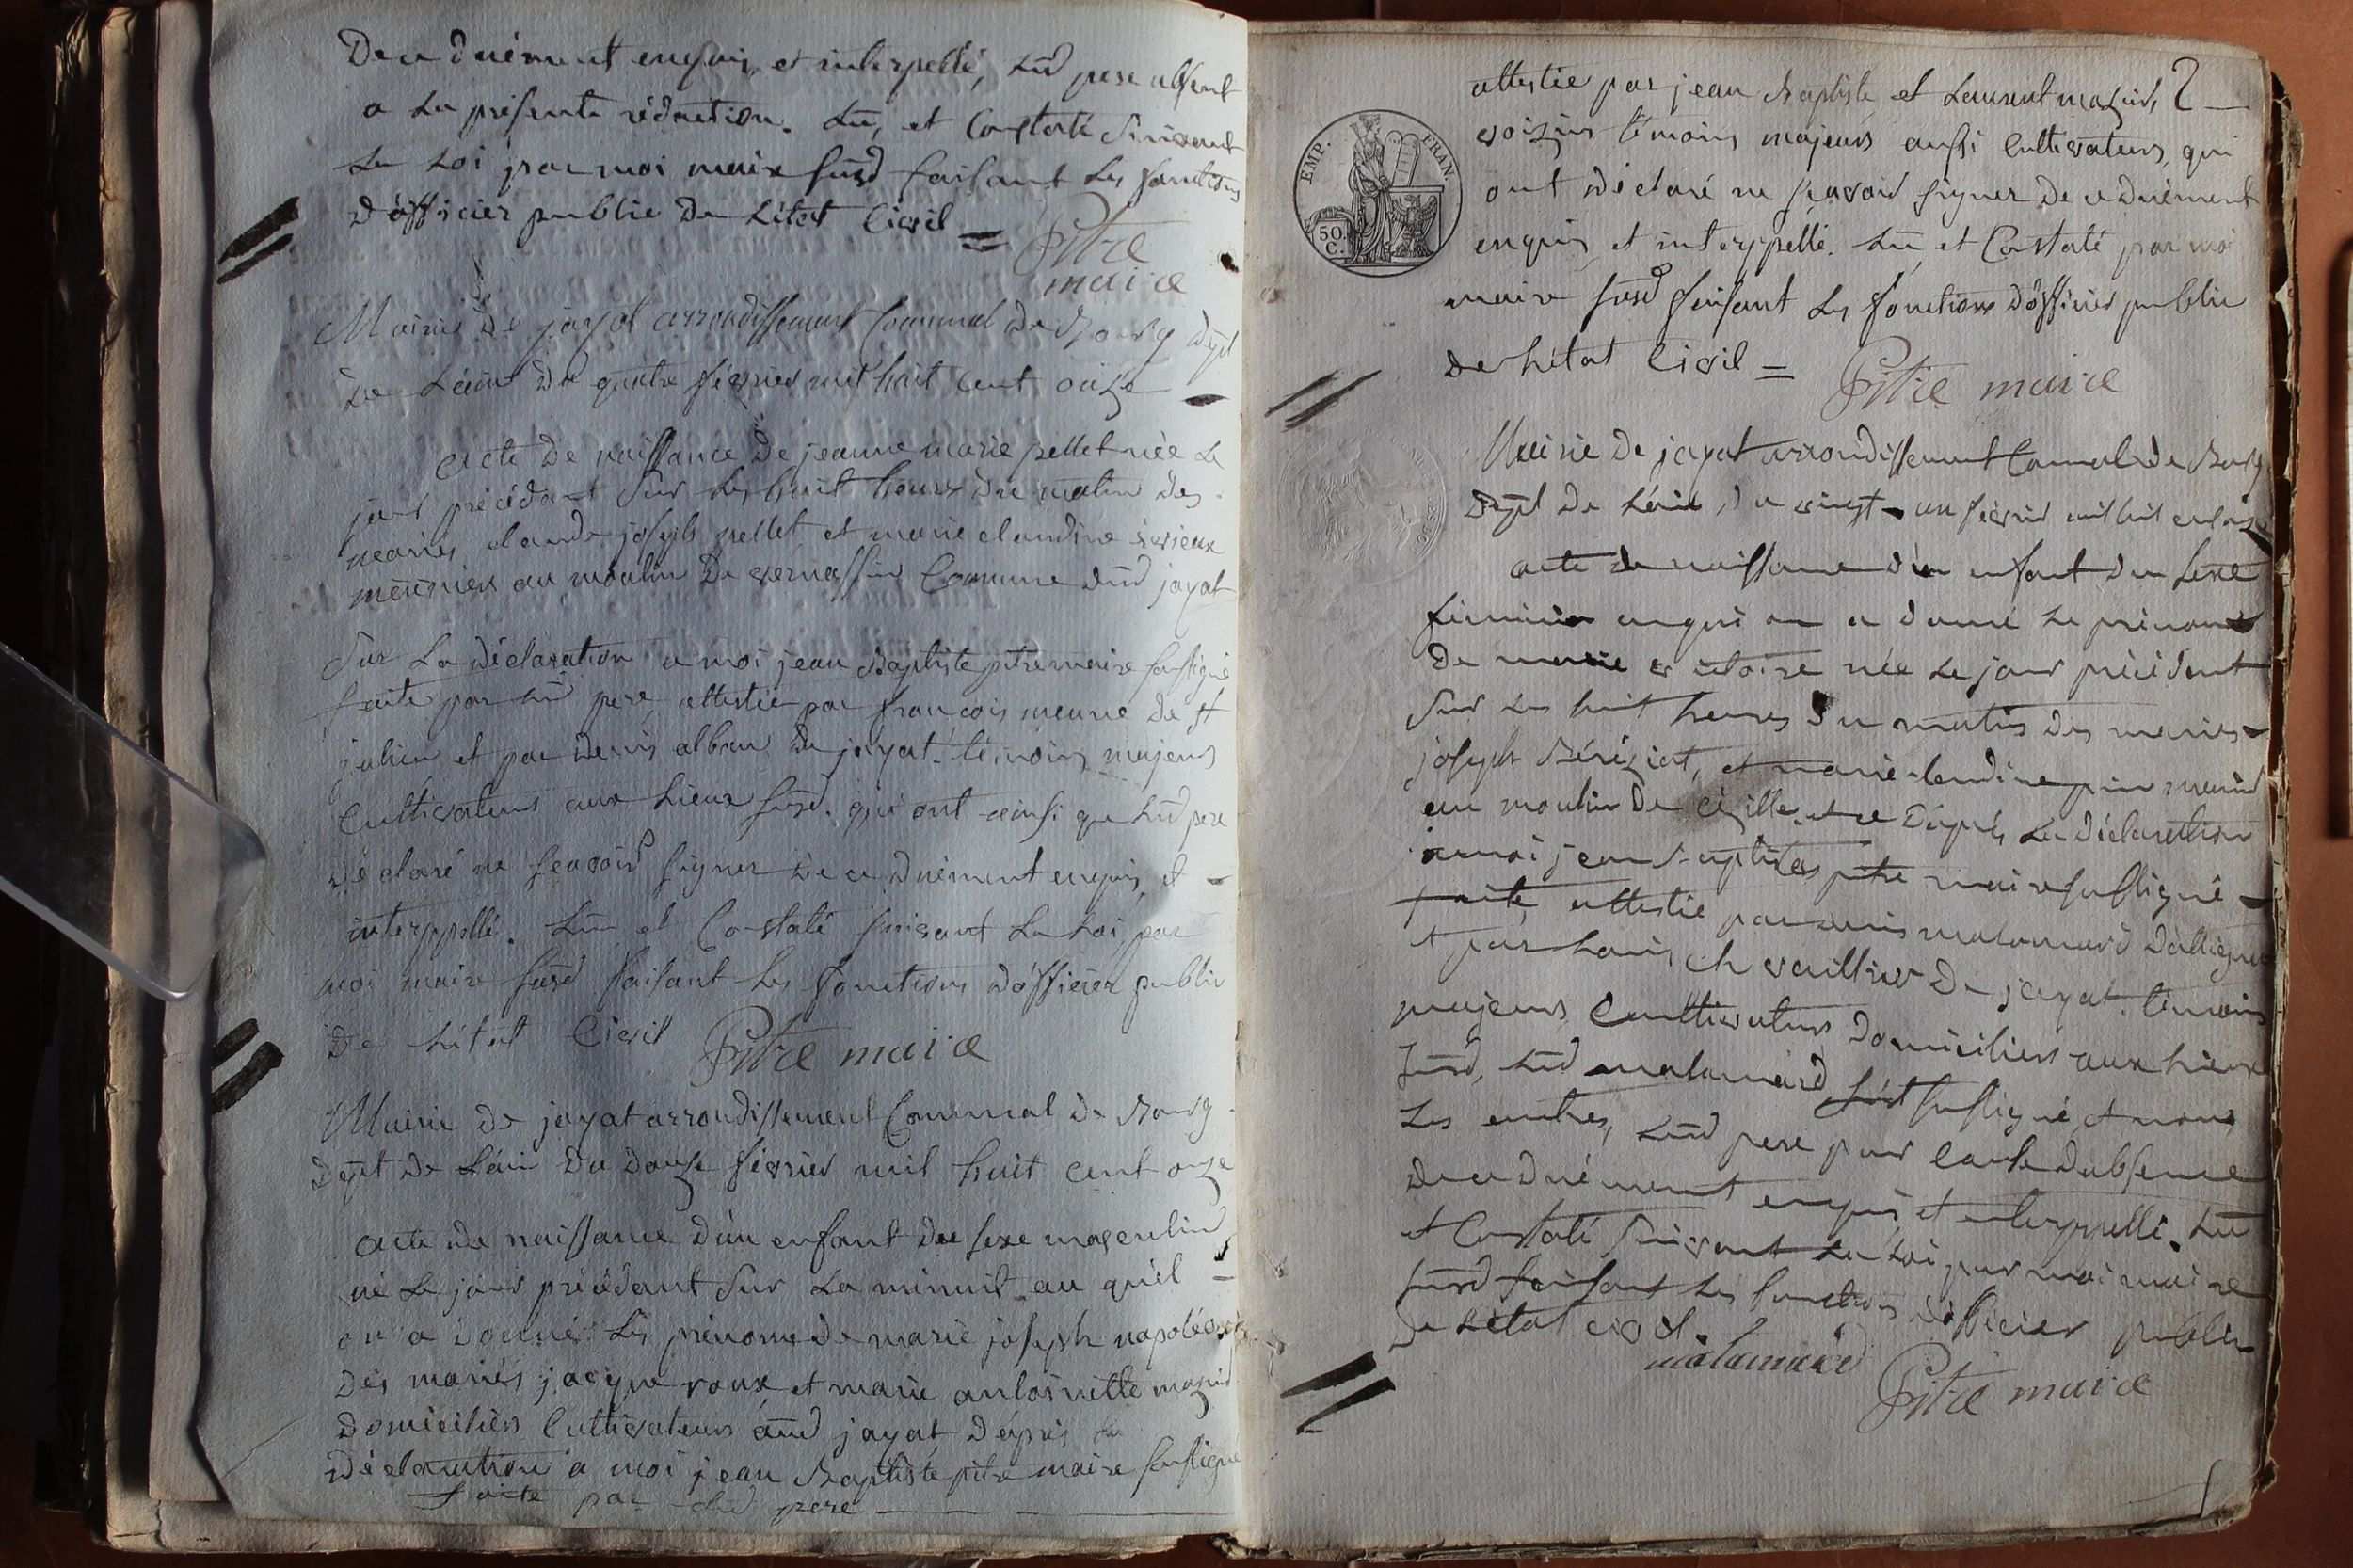 De ce duëment enquis, et interpellé, Lud pere absent
a La présente rédaction. Lu, et Constaté Suivant
La Loi par moi maire susd faisant Les fonctions
d'officier public De L'état Civil =
Pitre
maire
Mairie De jayat arrondissement Communal De Bourg dept
De L'ain du quatre février mil huit cent onze
acte De naissance De jeanne marie pellet née Le
jour précédant Sur Les huit heures du matin des
mariés claude joseph pellet et marie claudine
meuniers au moulin De vernassin Commune dud jayat
Sur La déclaration a moi jean Baptiste pitre maire soussigné
faite par Lud pere attestée par françois meunie de st
julien et par denis alban De jayat témoins majeurs
Cultivateurs aux Lieux susd. qui ont ainsi que Lud pere
déclaré ne scavoir signer De ce duëment enquis, et
interppellé. Lu et Constaté suivant La Loi, par
moi maire susd faisant Les fonctions d'officier public
De L'état Civil Pitre maire
Mairie De jayat arrondissement Communal De Bourg
dept De L'ain Du Douze février mil huit cent onze
acte De naissance d'un enfant du sexe masculin
né Le jour précédant Sur La minuit au quel
on a donné Les prénoms de marie joseph napoléon
Des mariés jacque roux et marie antoinette mazuir
Domiciliés Cultivateurs aud jayat D'après La
déclaration a moi jean Baptiste pitre maire soussigné
faite par Lud pere
attestée par jean Baptiste et Laurent mazuir, 2
voisins témoins majeurs aussi Cultivateurs, qui
ont déclaré ne scavoir signer De ce duëment
enquis et interppellé. Lu et Constaté par moi
maire susd faisant Les fonctions d'officier public
de L'état Civil =
Pitre maire
EMP. FRAN.
50. C.
Mairie De jayat arrondissement Communal de Bourg
Dept De L'ain, Du vingt-un février mil huit cent onze
acte de naissance d'un enfant du sexe
féminin auquel on a donné Le prénoms
De marie victoire née Le jour précédent
Sur Les huit heures du matin Des mariés
joseph Béréziat, et marie claudine
au moulin De Cézille, et ce D'après La déclaration
a moi jean Baptiste pitre maire soussigné
faite, attestée par malamard
et par Louis chevaillier De jayat témoins
majeurs Cultivateurs Domiciliés aux Lieux
susd, Lud malamard s'est soussigné et non
Les autres, Lud pere pour cause d'absence
De ce duëment enquis, et interppellé. Lu
et Constaté Suivant La Loi, par moi maire
susd faisant Les fonctions d'officier public
De L'état civil.
malamard Pitre maire